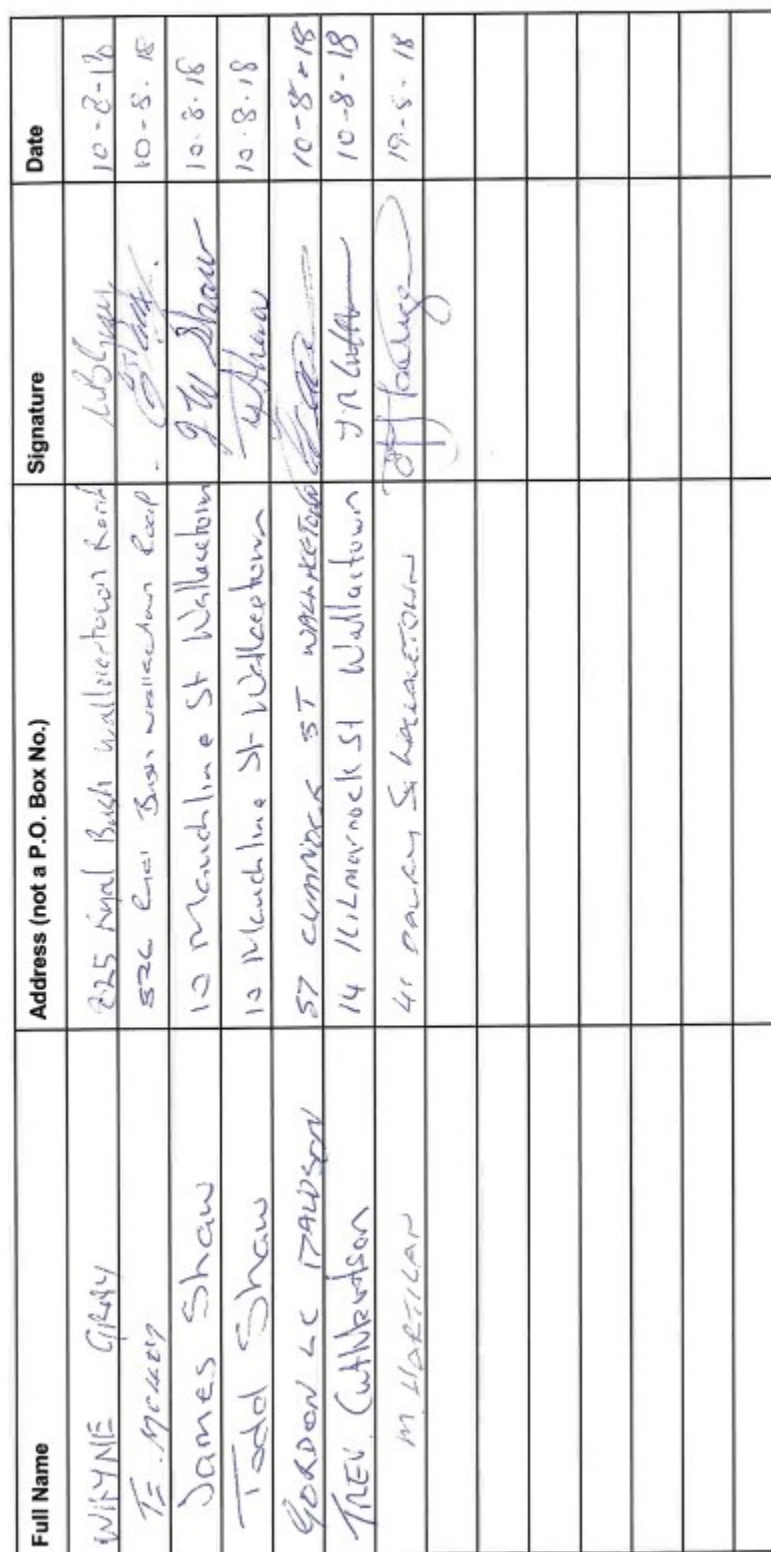 Full Name Address (not a P.O. Box No.) Signature Date
WAYNE GRAY 225 Kyal Bush Wallacetown Road 10-8-18
Bush Wallacetown Road 10-8-18
James Shaw 10 Mauchline St Wallacetown J W Shaw 10.8.18
Todd Shaw 10 Mauchline St Wallacetown T Shaw 10.8.18
GORDON DAWSON 57 CUMNOCK ST WALLACETOWN 10-8-18
TREV. Cuthbertson 14 Kilmarnock St Wallactown 10-8-18
M HARTILAN 41 DALRY St WALLACETOWN 19-8-18